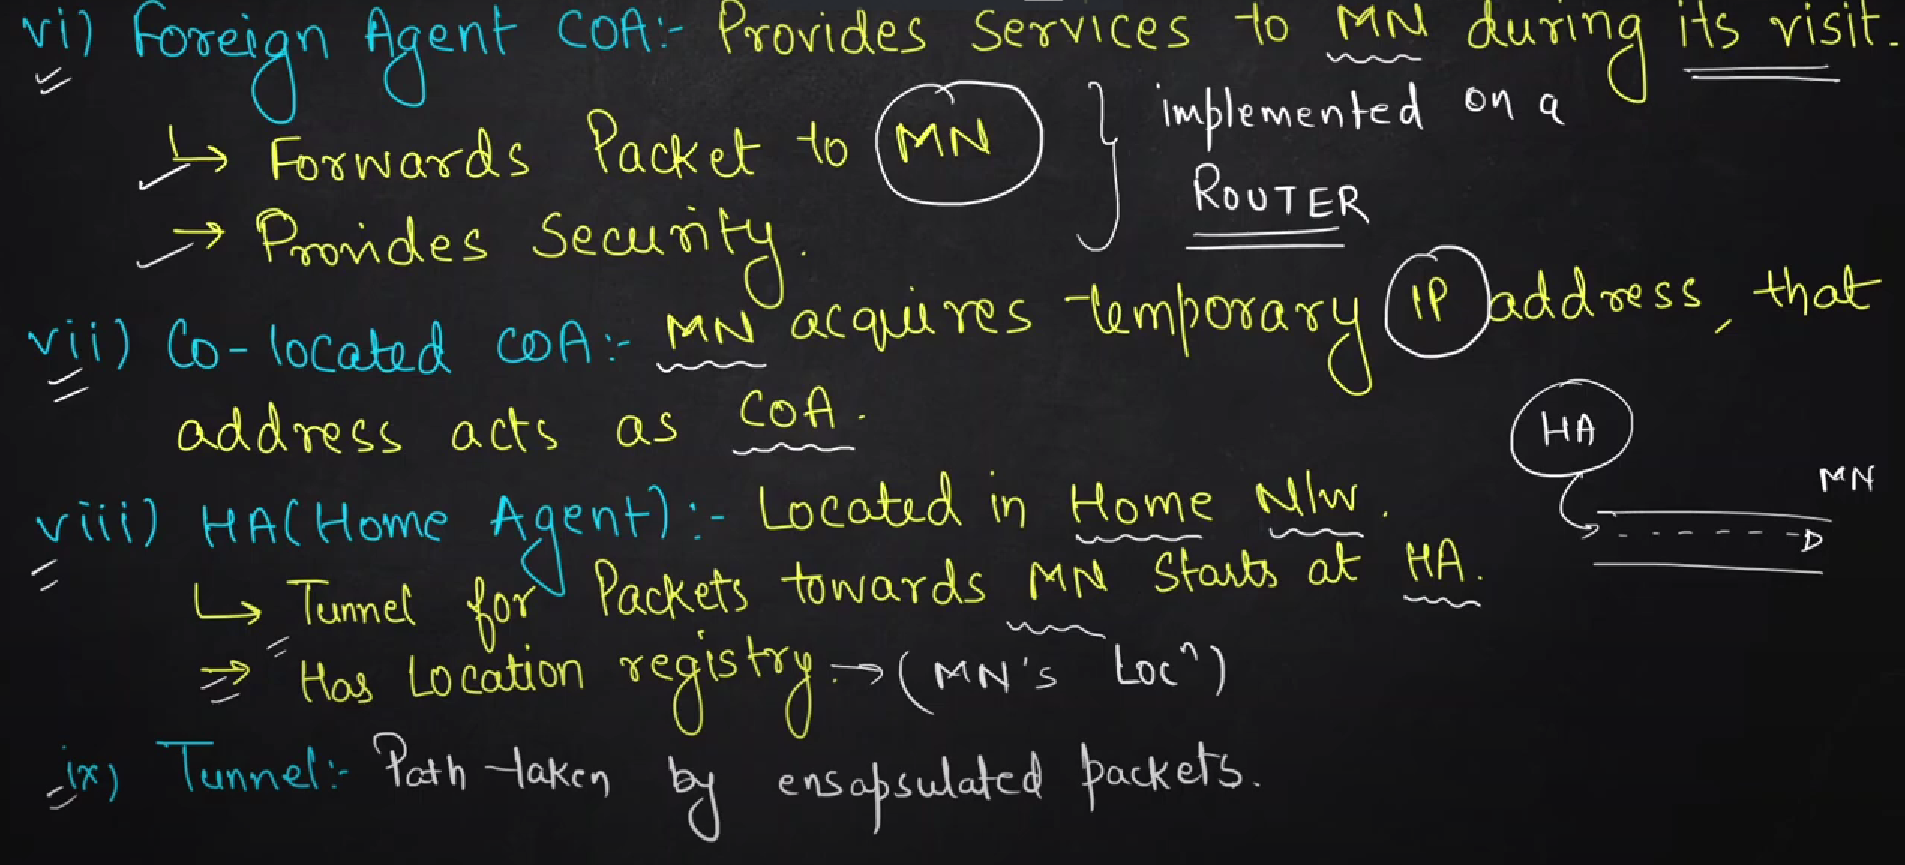 vi) Foreign Agent COA:- Provides Services to MN during its visit.
↳ Forwards Packet to MN } implemented on a
ROUTER
→ Provides Security.
vii) Co-located COA:- MN acquires temporary IP address, that
address acts as COA.
HA
MN
viii) HA(Home Agent):- Located in Home N/w.
↳ Tunnel for Packets towards MN Starts at HA.
⇒ Has Location registry.→(MN's Locⁿ)
ix) Tunnel:- Path taken by ensapsulated packets.